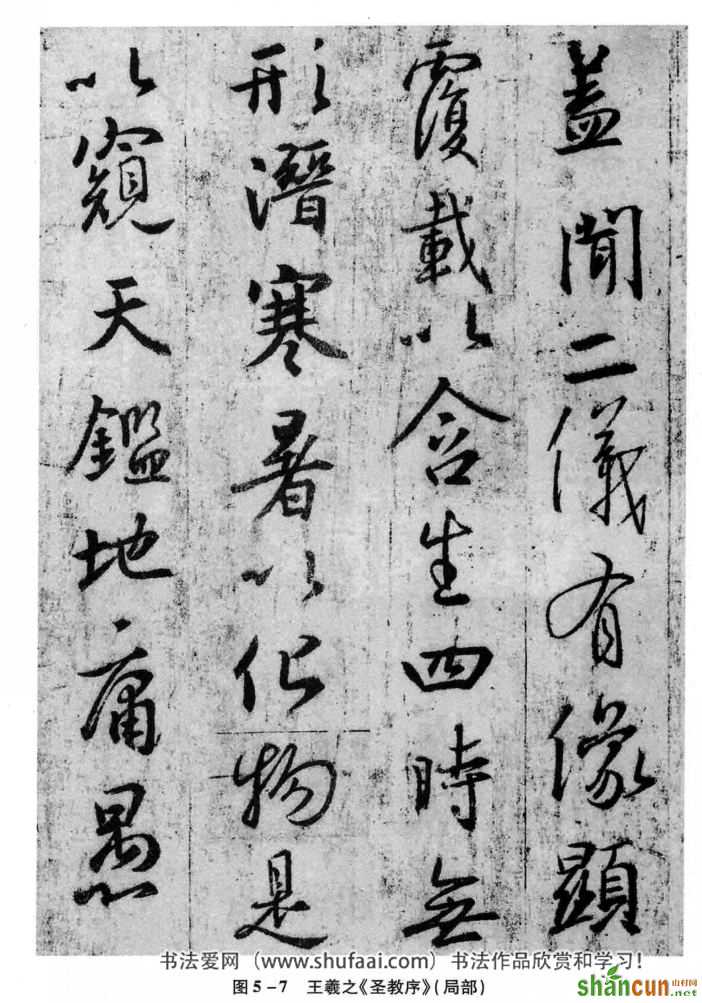 蓋聞二儀有像顯
覆載以含生四時無
形潛寒暑以化物是
以窺天鑑地庸愚
书法爱网（www.shufaai.com）书法作品欣赏和学习！
图5-7 王羲之《圣教序》(局部)
山村网
shancun.net